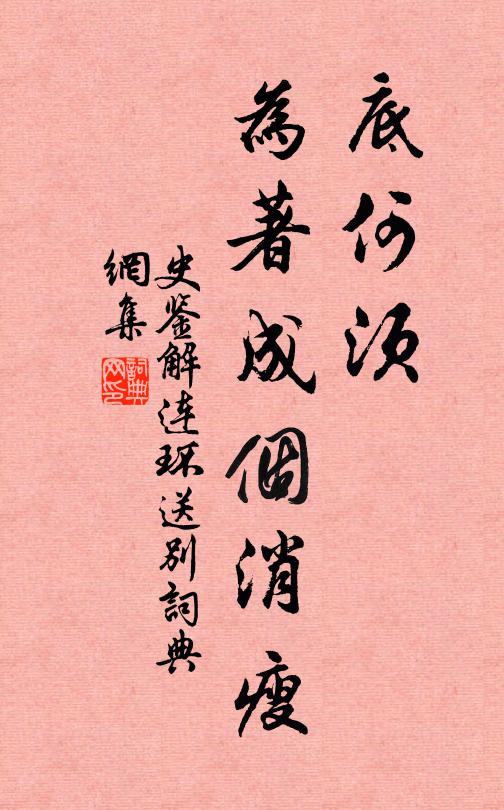 底何须
為著成個消瘦
史鉴解连环送别詞典
網集
詞典
网印